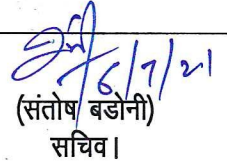 6/7/21
(संतोष बडोनी)
सचिव।